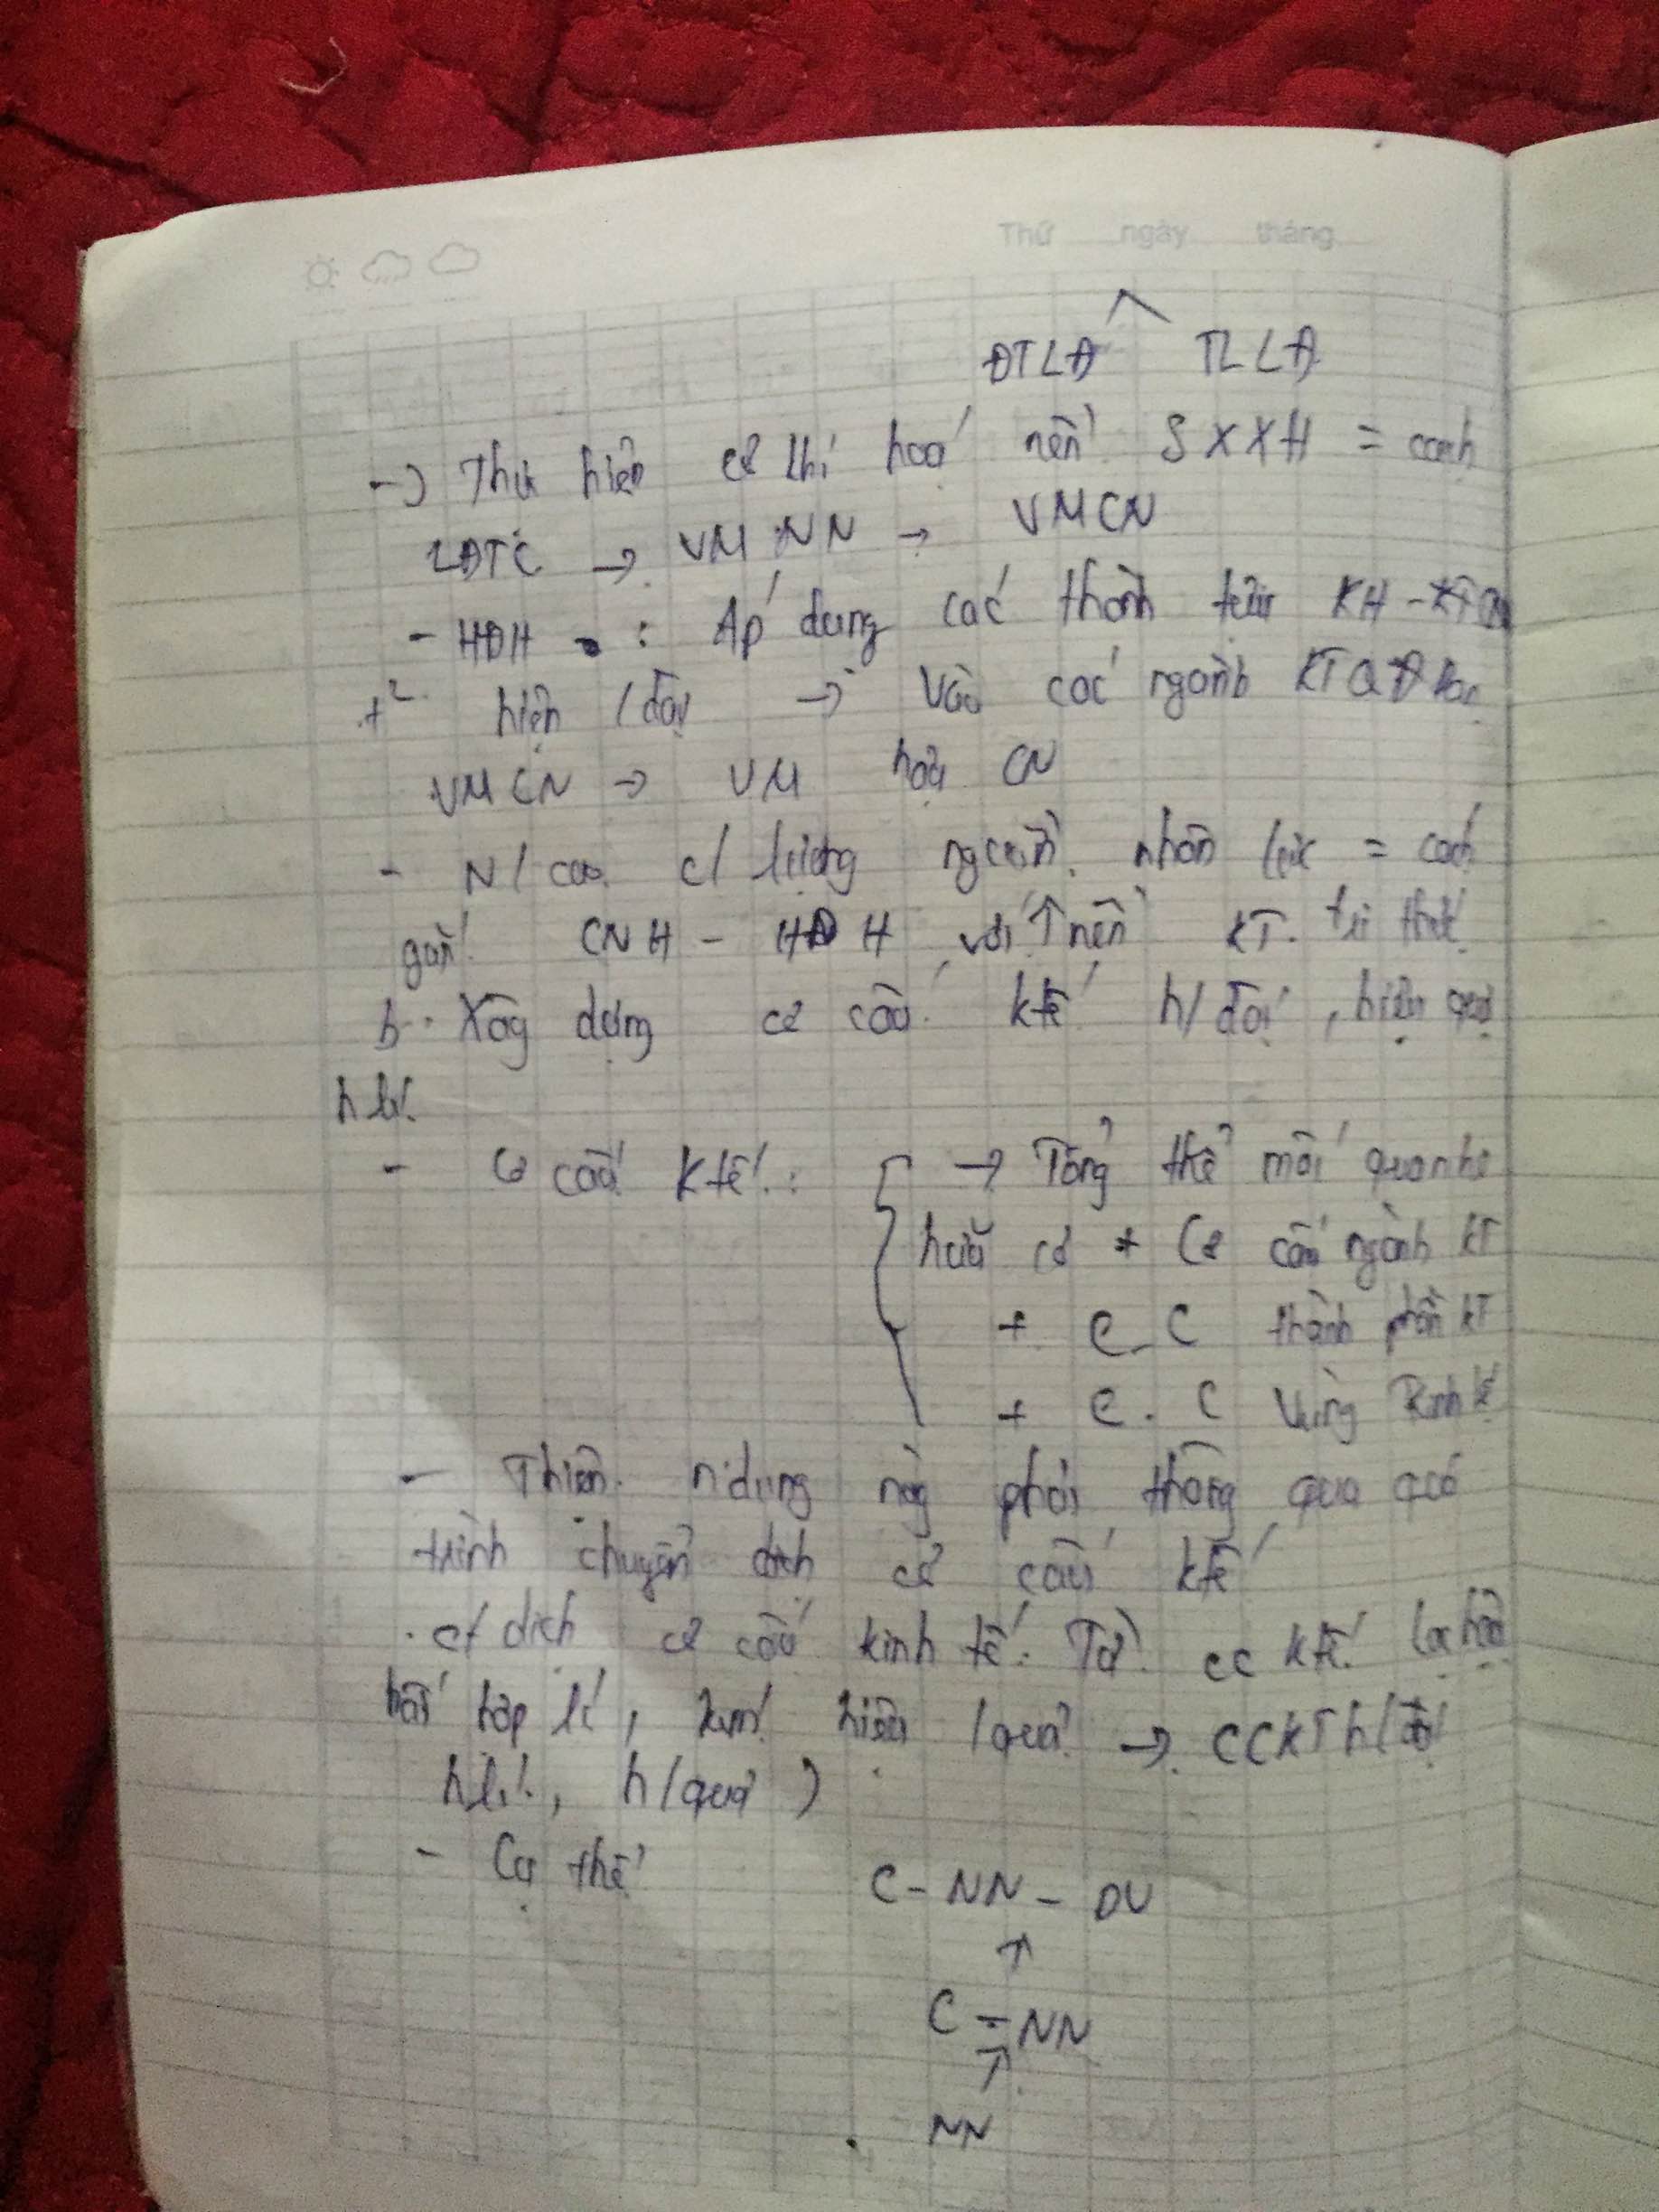 Thứ ngày tháng
ĐTLĐ TLLĐ
-> Thực hiện cơ khí hoá nền SXXH = cách
LĐTC -> VMNN -> VMCN
- HĐH : Áp dụng các thành tựu KH - KT CN
t² hiện / đại -> Vào các ngành KTQD
VMCN -> VM hậu CN
- N/ cao c/ lượng nguồn nhân lực = cách
gắn CNH - HĐH với ↑ nền KT. tri thức
b. Xây dựng cơ cấu ktế h/đại, hiệu quả
h lí.
- Cơ cấu Ktế : -> Tổng thể mối quan hệ
hữu cơ + Cơ cấu ngành KT
+ C. C thành phần KT
+ C. C Vùng Kinh tế
- Thiện n.dung này phải thông qua quá
trình chuyển dịch cơ cấu ktế
. c/ dịch cơ cấu kinh tế. Từ cc ktế lạc hậu
bất hợp lí, kém hiệu /quả -> CCKT h/đại
h lí., h/quả )
- Cụ thể C - NN - DV
↑
C - NN
↗
NN